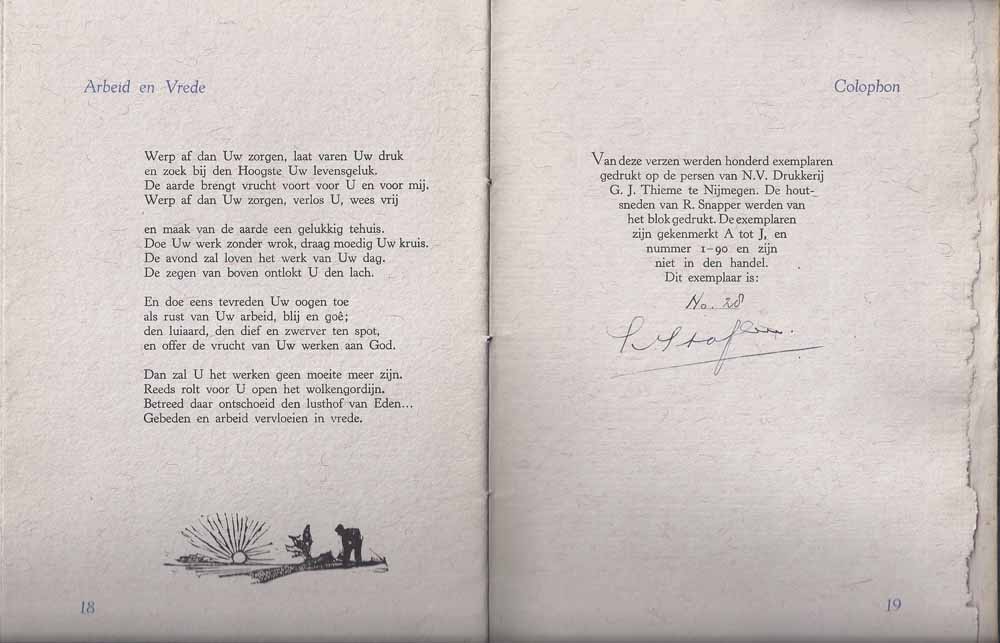 Arbeid en Vrede
Werp af dan Uw zorgen, laat varen Uw druk
en zoek bij den Hoogste Uw levensgeluk.
De aarde brengt vrucht voort voor U en voor mij.
Werp af dan Uw zorgen, verlos U, wees vrij
en maak van de aarde een gelukkig tehuis.
Doe Uw werk zonder wrok, draag moedig Uw kruis.
De avond zal loven het werk van Uw dag.
De zegen van boven ontlokt U den lach.
En doe eens tevreden Uw oogen toe
als rust van Uw arbeid, blij en goê;
den luiaard, den dief en zwerver ten spot,
en offer de vrucht van Uw werken aan God.
Dan zal U het werken geen moeite meer zijn.
Reeds rolt voor U open het wolkengordijn.
Betreed daar ontschoeid den lusthof van Eden...
Gebeden en arbeid vervloeien in vrede.
18
Colophon
Van deze verzen werden honderd exemplaren
gedrukt op de persen van N.V. Drukkerij
G. J. Thieme te Nijmegen. De hout-
sneden van R. Snapper werden van
het blok gedrukt. De exemplaren
zijn gekenmerkt A tot J, en
nummer 1-90 en zijn
niet in den handel.
Dit exemplaar is:
No. 28
19